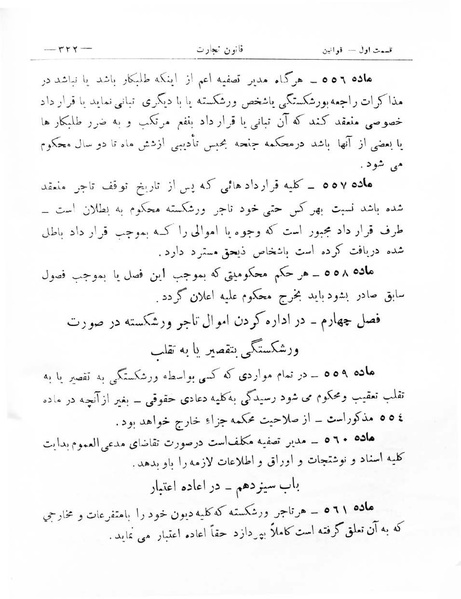 قسمت اول — قوانین قانون تجارت — ۳۲۲ —
ماده ۵۵۶ — هرگاه مدیر تصفیه اعم از اینکه طلبکار باشد یا نباشد در
مذاکرات راجعه بورشکستگی باشخص ورشکسته یا با دیگری تبانی نماید یا قرارداد
خصوصی منعقد کند که آن تبانی یا قرارداد بنفع مرتکب و به ضرر طلبکار ها
یا بعضی از آنها باشد درمحکمه جنحه بحبس تأدیبی ازشش ماه تا دو سال محکوم
می شود .
ماده ۵۵۷ — کلیه قراردادهائی که پس از تاریخ توقف تاجر منعقد
شده باشد نسبت بهر کس حتی خود تاجر ورشکسته محکوم به بطلان است —
طرف قرارداد مجبور است که وجوه یا اموالی را که بموجب قرارداد باطل
شده دریافت کرده است باشخاص ذیحق مسترد دارد .
ماده ۵۵۸ — هر حکم محکومیتی که بموجب این فصل یا بموجب فصول
سابق صادر بشود باید بخرج محکوم علیه اعلان گردد .
فصل چهارم — در اداره کردن اموال تاجر ورشکسته در صورت
ورشکستگی بتقصیر یا به تقلب
ماده ۵۵۹ — در تمام مواردی که کسی بواسطه ورشکستگی به تقصیر یا به
تقلب تعقیب ومحکوم می شود رسیدگی به کلیه دعاوی حقوقی — بغیر از آنچه در ماده
۵۵۴ مذکوراست — از صلاحیت محکمه جزاء خارج خواهد بود .
ماده ۵۶۰ — مدیر تصفیه مکلف است درصورت تقاضای مدعی العموم بدایت
کلیه اسناد و نوشتجات و اوراق و اطلاعات لازمه را باو بدهد .
باب سیزدهم — در اعاده اعتبار
ماده ۵۶۱ — هر تاجر ورشکسته که کلیه دیون خود را بامتفرعات و مخارجی
که به آن تعلق گرفته است کاملاً بپردازد حقاً اعاده اعتبار می نماید .